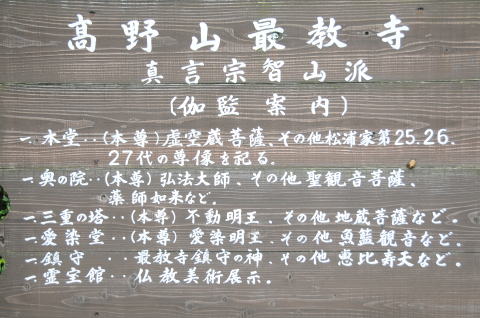 髙野山最教寺
真言宗智山派
(伽監案内)
一.本堂‥(本尊)虚空蔵菩薩、その他松浦家第25.26.
27代の尊像を祀る.
一.奥の院‥(本尊)弘法大師、その他聖観音菩薩、
薬師如来など。
一.三重の塔‥(本尊)不動明王、その他地蔵菩薩など。
一.愛染堂‥(本尊)愛染明王、その他魚籃観音など。
一.鎮守‥最教寺鎮守の神、その他恵比寿天など。
一.霊宝館‥仏教美術展示。